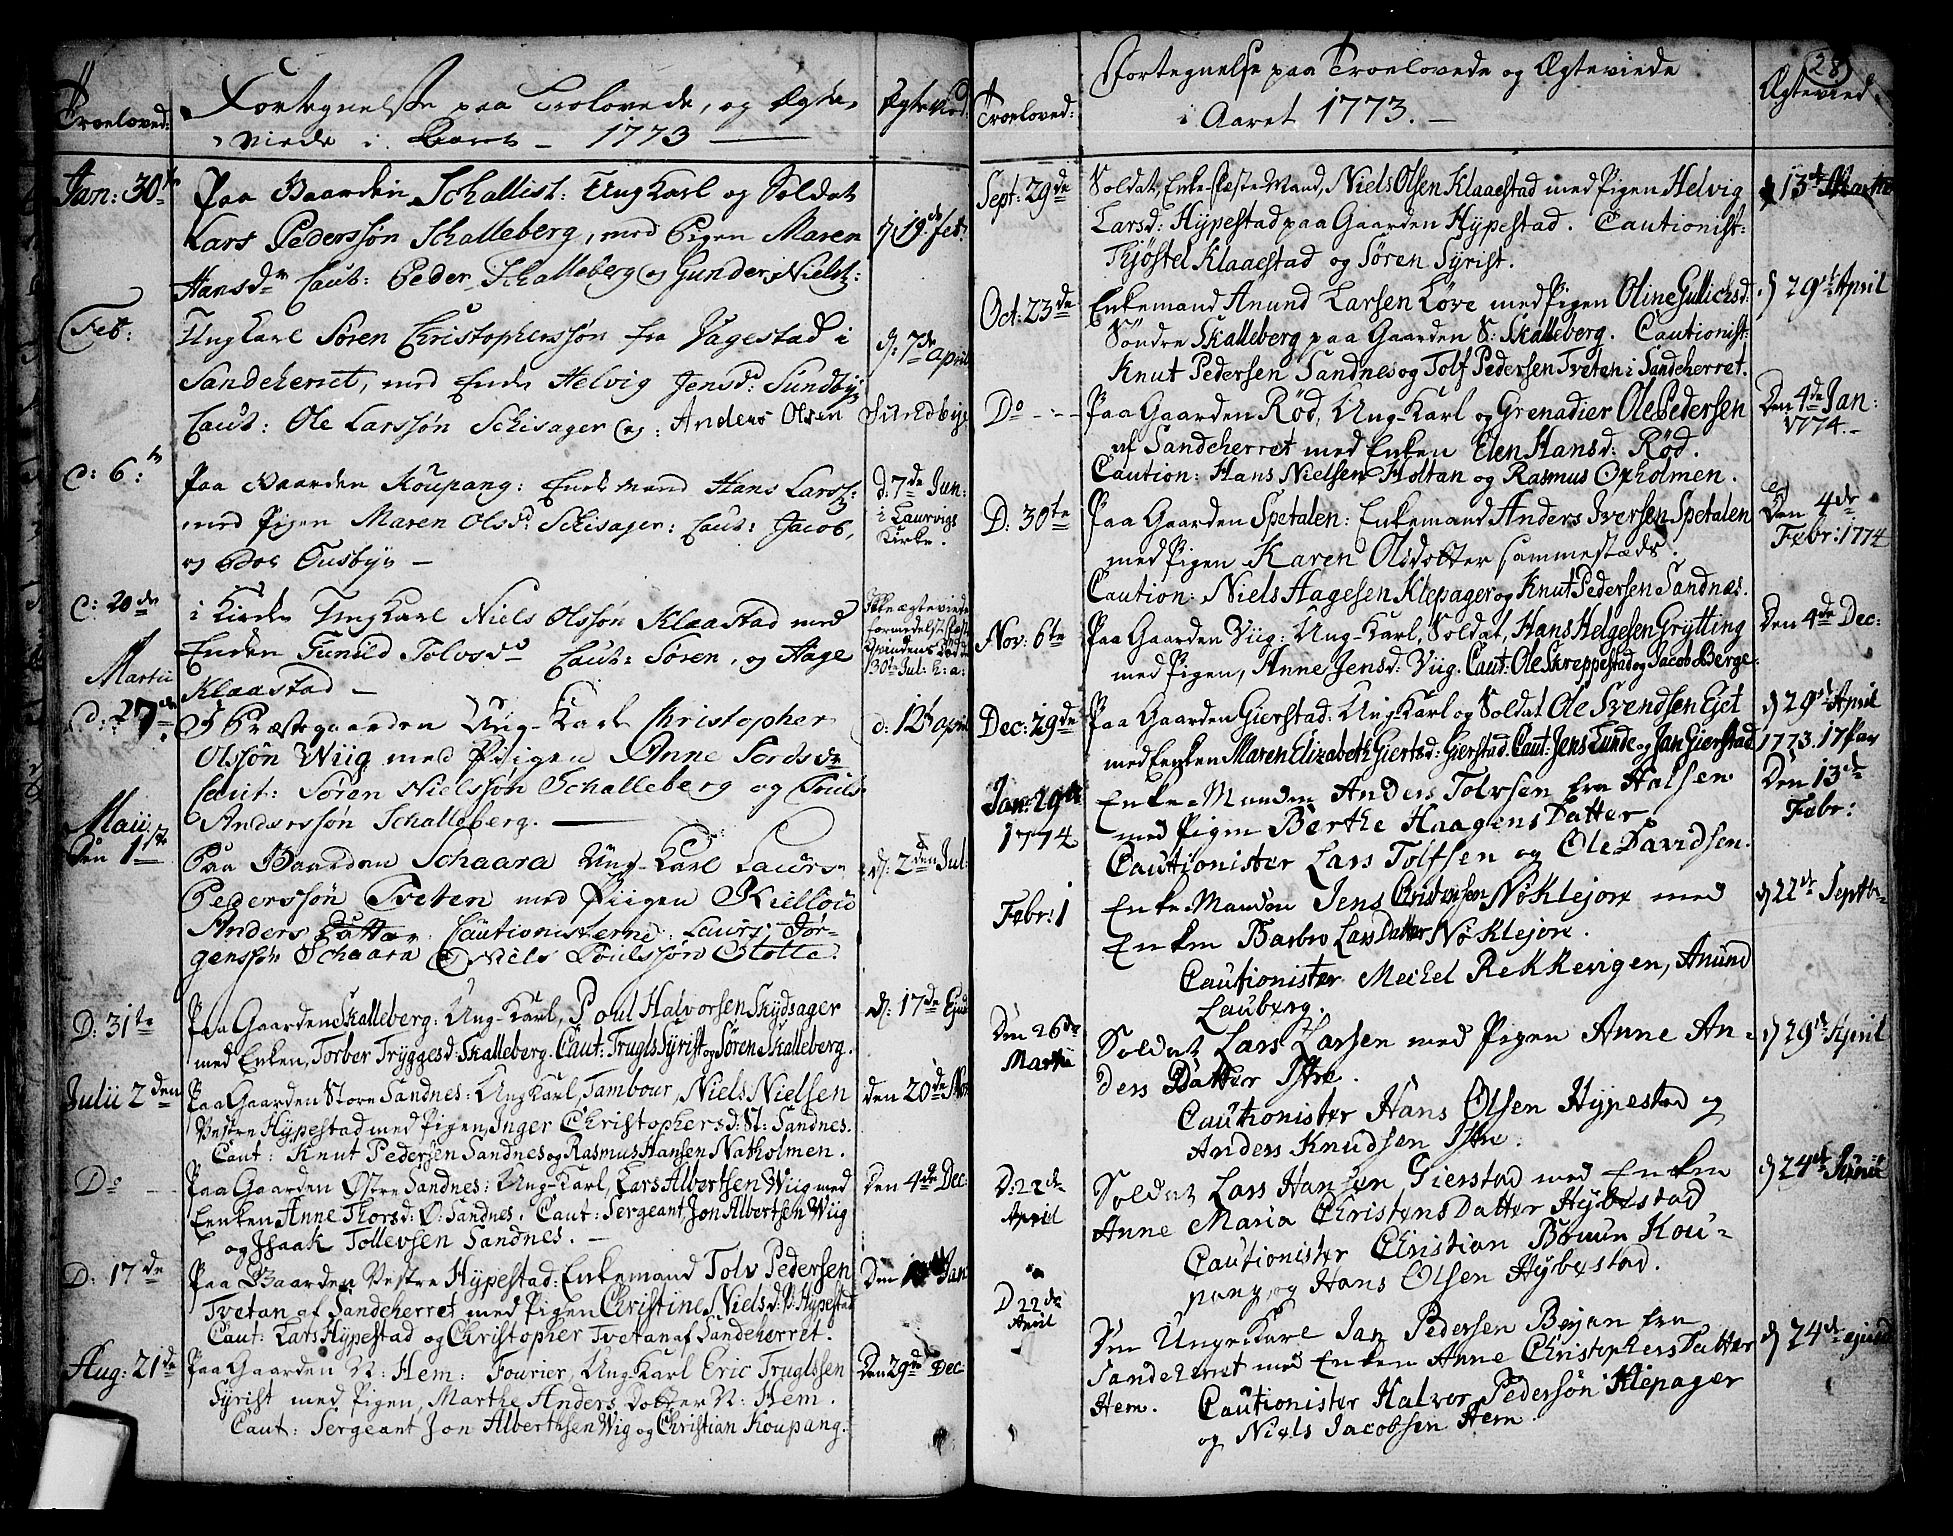 Troeloved:
Fortegnelse paa Trolovede, og Ægte-
viede i Aaret 1773
Jan: 30te
Paa Gaarden Schallist: Ung Karl og Soldat
Lars Pederssøn Schalleberg, med Pigen Maren
Hansdr Caut: Peder Schalleberg og Gunder Nielss:
d 19de feb:
Feb:
Ung Karl Søren Christopherssøn fra Vagestad i
Sandeherret, med Enche Helvig Jensd: Sundbye
Caut: Ole Larssøn Schisager og: Anders Olsen Sundbye
d: 7de april
d: 6te
Paa Gaarden Koupang: Enchemand Hans Larss:
med Pigen Maren Olsdr Schisager: Caut: Jacob,
og Boe Tusbye —
d: 7de Jun:
i Laurvigs
Kirke.
d: 20de
i Kirken Ung Karl Niels Olssøn Klaastad med
Enchen Gunild Tolvsdr Caut: Søren, og Aage
Klaastad —
Ikke ægteviede
formedelst
Qvindens død d:
30te Jul: h: a:
Martii
d: 27de
I Præstegaarden Ung-Karl Christopher
Olssøn Wiig med Piigen Anne Tordsdr
Caut: Søren Nielssøn Schalleberg og Pouls
Anderssøn Schalleberg. —
d: 12te april
Maii
den 1ste
Paa Gaarden Schaara Ung-Karl Laurs
Pederssøn Tveten med Piigen Kiellou
Anders Datter. Cautionisterne Laurs Jør-
genssøn Schaara og Niels Poulssøn Stotte.
d: 2den Jul:
D: 31te
Paa Gaarden Skalleberg: Ung-Karl, Poul Halvorsen Skydsager
med Enken, Torber Tryggesd: Skalleberg. Caut: Trugls Syrist og Søren Skalleberg.
d: 17de Ejusd
Julii 2den
Paa Gaarden Store Sandnes: Ung Karl, Tambour, Niels Nielsen
Vestre Hypestad med Pigen, Inger Christophersd: St: Sandnes.
Caut: Knut Pedersen Sandnes og Rasmus Hansen Natholmen.
den 20de Nov
Do
Paa Gaarden Østre Sandnes: Ung-Karl, Lars Albertsen Wiig med
Eenken Anne Thorsd: Ø: Sandnes. Caut: Sergeant Jon Albertsen Wiig
og Isaak Tollevsen Sandnes. —
Den 4de Dec:
D: 17de
Paa Gaarden Vestre Hypestad: Enkemand Tolv Pedersen
Tvetan af Sandeherret med Pigen Christine Nielsd: V: Hypestad
Caut: Lars Hypestad og Christopher Tvetan af Sandeherret.
Den Jan
Aug: 21de
Paa Gaarden N: Hem: Fourier, Ung Karl Eric Truglssen
Syrist med Pigen, Marthe Anders Dotter N: Hem.
Caut: Sergeant Jon Alberthsen Wiig og Christian Koupang.
Den 29de Dec:
28
Troeloved:
Fortegnelse paa Troelovede og Ægteviede
i Aaret 1773. —
Ægteviede
Sept: 29de
Soldat, Enke-Fæste Mand, Niels Olsen Klaaestad med Pigen Helvig
Larsd: Hypestad paa Gaarden Hypestad. Cautionist:
Thjøstel Klaaestad og Søren Syrist.
13de Martii
Oct: 23de
Enkemand Anund Larsen Løve med Pigen Oline Gulichsd:
Søndre Skalleberg paa Gaarden S: Skalleberg. Cautionist:
Knut Pedersen Sandnes og Tolf Pedersen Tveten i Sandeherret.
d 29de April
Do
Paa Gaarden Rød, Ung-Karl og Grenadier Ole Pedersen
af Sandeherret med Enken Elen Hansd: Rød.
Caution: Hans Nielsen Holtan og Rasmus Oxholmen.
Den 4de Jan:
1774. —
D: 30te
Paa Gaarden Spetalen: Enkemand Anders Iversen Spetalen
med Pigen Karen Olsdotter sammestæds.
Caution: Niels Hagesen Klepager og Knut Pedersen Sandnæs.
Den 4de
Febr: 1774
Nov: 6te
Paa Gaarden Viig: Ung-Karl, Soldat, Hans Helgesen Grytting
med Pigen, Anne Jensd: Viig. Caut: Ole Skreppestad og Jacob Berge
Den 4de Dec:
Dec: 29de
Paa Gaarden Gierstad: Ung-Karl og Soldat Ole Svendsen Ejet
med Eenken Maren Elizabeth Giertsd: Gierstad. Caut: Jens Lunde og Jan Gierstad
d 29de April
1773. 17 Par
Jan: 29de
1774
Enke-Manden Anders Tolvsen fra Halsen
med Pigen Berthe Haagens Datter
Cautionister Lars Tolfsen og Ole Davidsen.
Den 13de
Febr:
Febr: 1
Enke-Manden Jens Christensen Nøklejore med
Enken Barbro Lars Datter Nøklejore.
Cautionister Mechel Rekkevigen, Anund
Lauberg.
d 22de Septbr
Den 26de
Martii
Soldat Lars Larsen med Pigen Anne An-
ders Datter Istre.
Cautionister Hans Olsen Hypestad og
Anders Knudsen Istre.
d 29de April
D: 22de
April
Soldat Lars Hansen Gierstad med Enken
Anne Maria Christens Datter Hybestad
Cautionister Christian Bruun Kou-
pang, og Hans Olsen Hybestad.
d 24de Junii
D 22de
April
Den Unge Karl Jan Pedersen Bøjan fra
Sandeherret med Enken Anne Christophers Datter
Hem. Cautionister Halvor Pedersøn Klepager
og Niels Jacobsen Hem.
d 24de ejusd